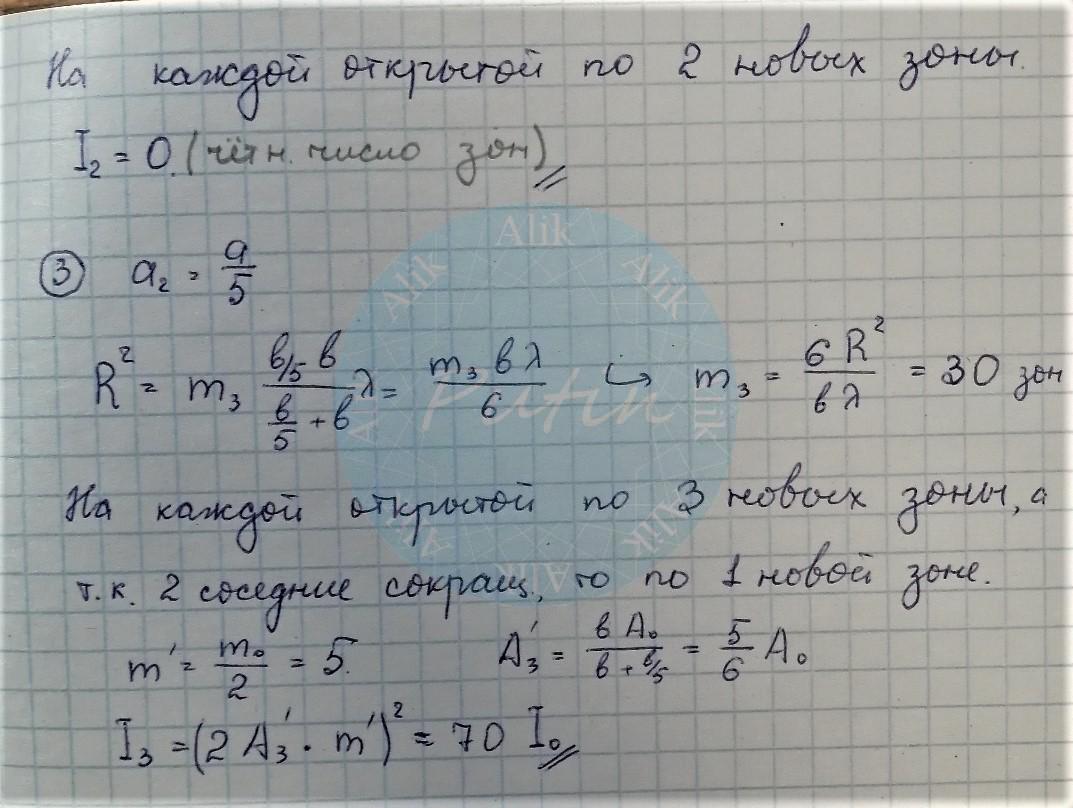 На каждой открытой по 2 новых зоны.
I₂ = 0. (чётн. число зон)
③ a₂ = a/5
R² = m₃ (в/5 в)/(в/5 + в) λ = (m₃ в λ)/6 ↪ m₃ = (6 R²)/(в λ) = 30 зон
На каждой открытой по 3 новых зоны, а
т.к. 2 соседние сокращ, то по 1 новой зоне.
m' = m₀/2 = 5. A₃' = (в A₀)/(в + в/5) = 5/6 A₀
I₃ = (2 A₃' · m')² = 70 I₀
Alik
Alik
Alik
Alik
Alik
Alik
Alik
Alik
Putin